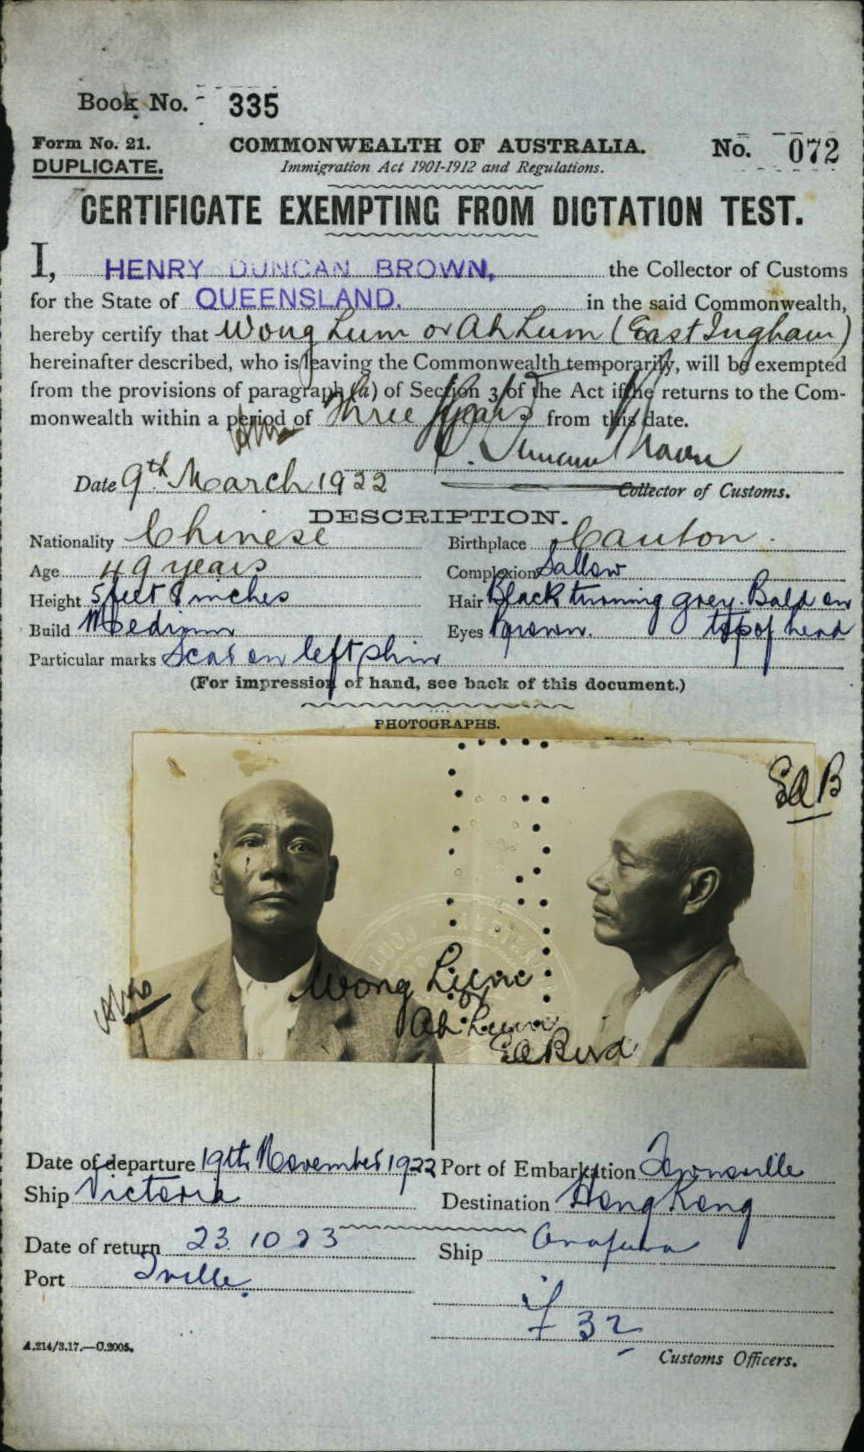 Book No. 335
Form No. 21.
DUPLICATE.
COMMONWEALTH OF AUSTRALIA.
Immigration Act 1901-1912 and Regulations.
No. 072
CERTIFICATE EXEMPTING FROM DICTATION TEST.
I, HENRY DUNCAN BROWN, the Collector of Customs
for the State of QUEENSLAND. in the said Commonwealth,
hereby certify that Wong Lum or Ah Lum (East Ingham)
hereinafter described, who is leaving the Commonwealth temporarily, will be exempted
from the provisions of paragraph (a) of Section 3 of the Act if he returns to the Com-
monwealth within a period of Three Years from this date.
Date 9th March 1922
Collector of Customs.
DESCRIPTION.
Nationality Chinese
Birthplace Canton.
Age 49 years
Complexion Sallow
Height 5 feet 8 inches
Hair Black turning grey. Bald on
Build Medium
Eyes Brown. top of head
Particular marks Scar on left shin
(For impression of hand, see back of this document.)
PHOTOGRAPHS.
Wong Lum
or
Ah Lum
Date of departure 19th November 1922 Port of Embarkation Townsville
Ship Victoria
Destination Hong Kong
Date of return 23 10 23
Ship Arafura
Port Tville.
32
A.214/3.17.—C.2005.
Customs Officers.